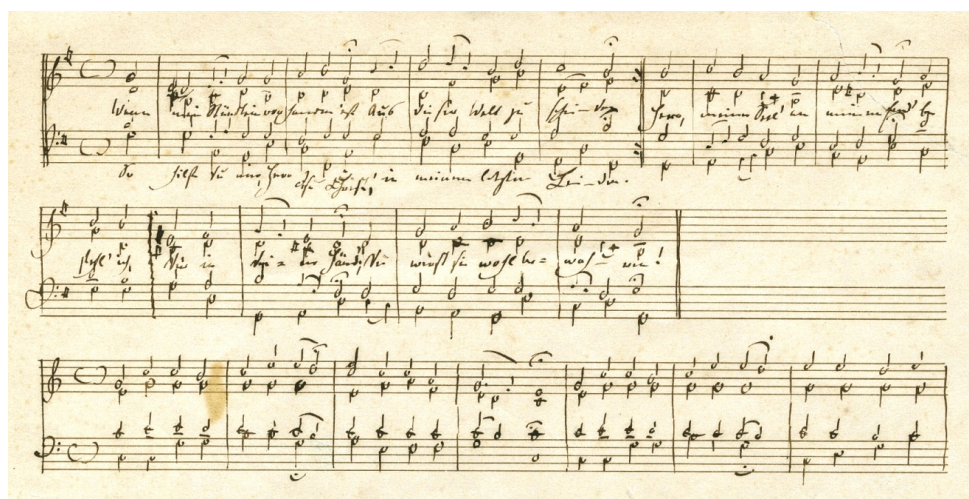 Wenn mein Stündlein vorhanden ist aus dieser Welt zu scheiden Herr, meine Seel' an meinem End' be
So hilf du mir, Herr Jesu Christ, in meinem letzten Leiden.
fehl' ich, Dir in dei= ne Händ', Du wirst sie wohl be= wah= ren!